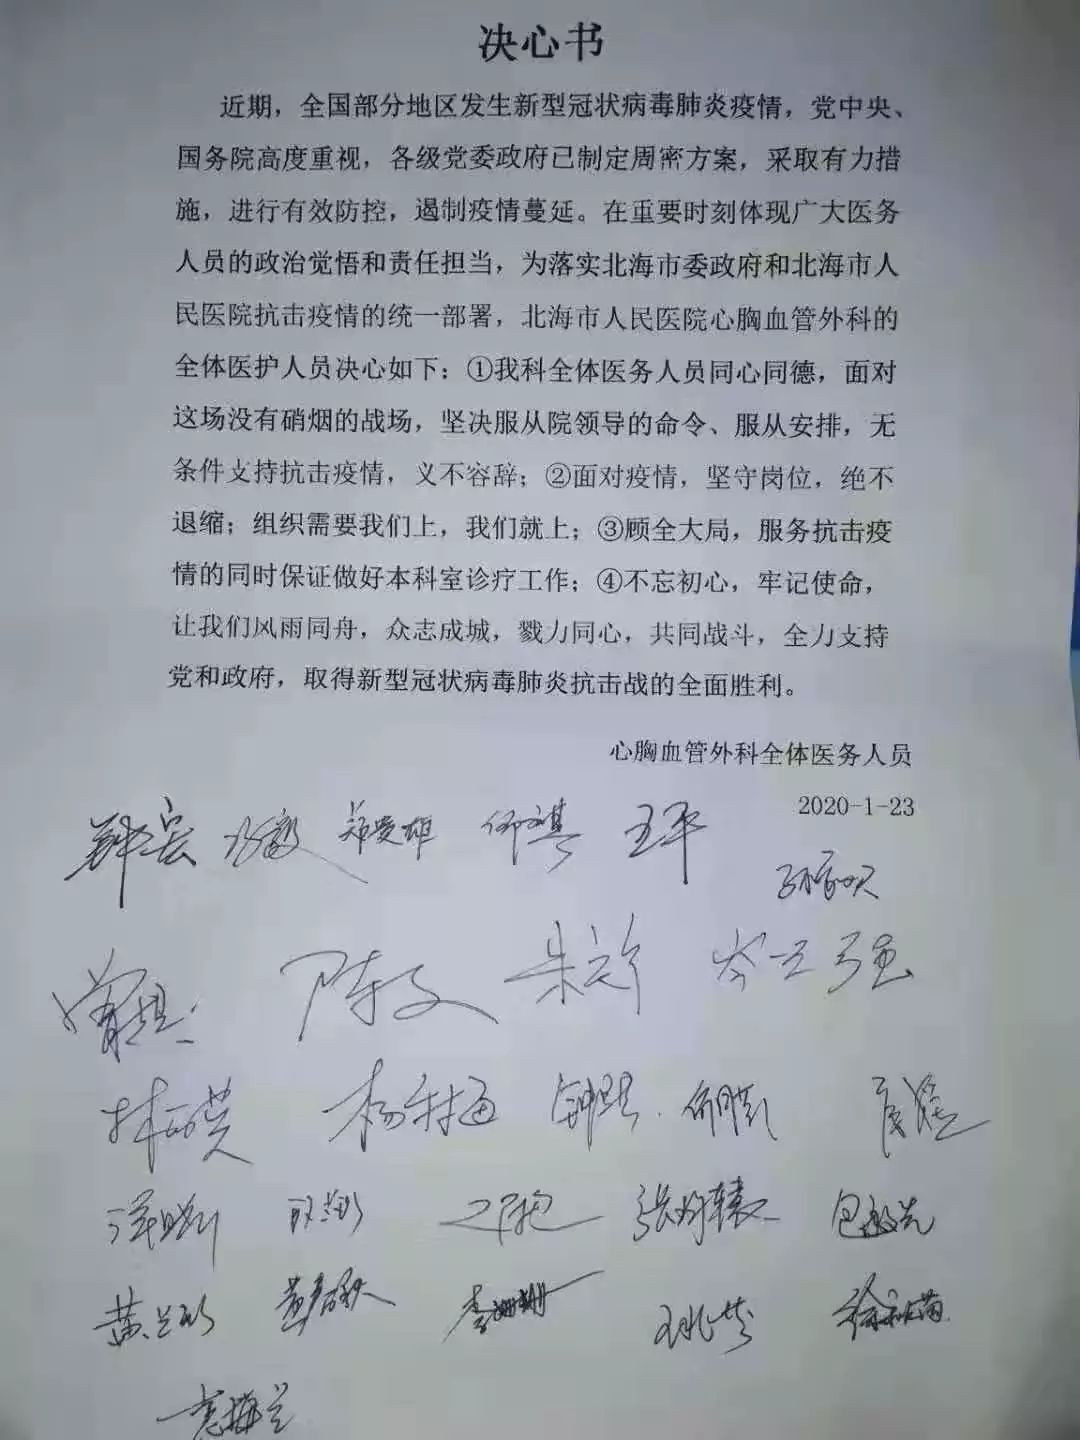 决心书
近期，全国部分地区发生新型冠状病毒肺炎疫情，党中央、
国务院高度重视，各级党委政府已制定周密方案，采取有力措
施，进行有效防控，遏制疫情蔓延。在重要时刻体现广大医务
人员的政治觉悟和责任担当，为落实北海市委政府和北海市人
民医院抗击疫情的统一部署，北海市人民医院心胸血管外科的
全体医护人员决心如下：①我科全体医务人员同心同德，面对
这场没有硝烟的战场，坚决服从院领导的命令、服从安排，无
条件支持抗击疫情，义不容辞；②面对疫情，坚守岗位，绝不
退缩；组织需要我们上，我们就上；③顾全大局，服务抗击疫
情的同时保证做好本科室诊疗工作；④不忘初心，牢记使命，
让我们风雨同舟，众志成城，戮力同心，共同战斗，全力支持
党和政府，取得新型冠状病毒肺炎抗击战的全面胜利。
心胸血管外科全体医务人员
2020-1-23
王平
陈文
岑立强